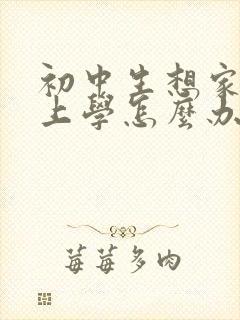 初中生想家
上學怎麼办
莓莓多肉